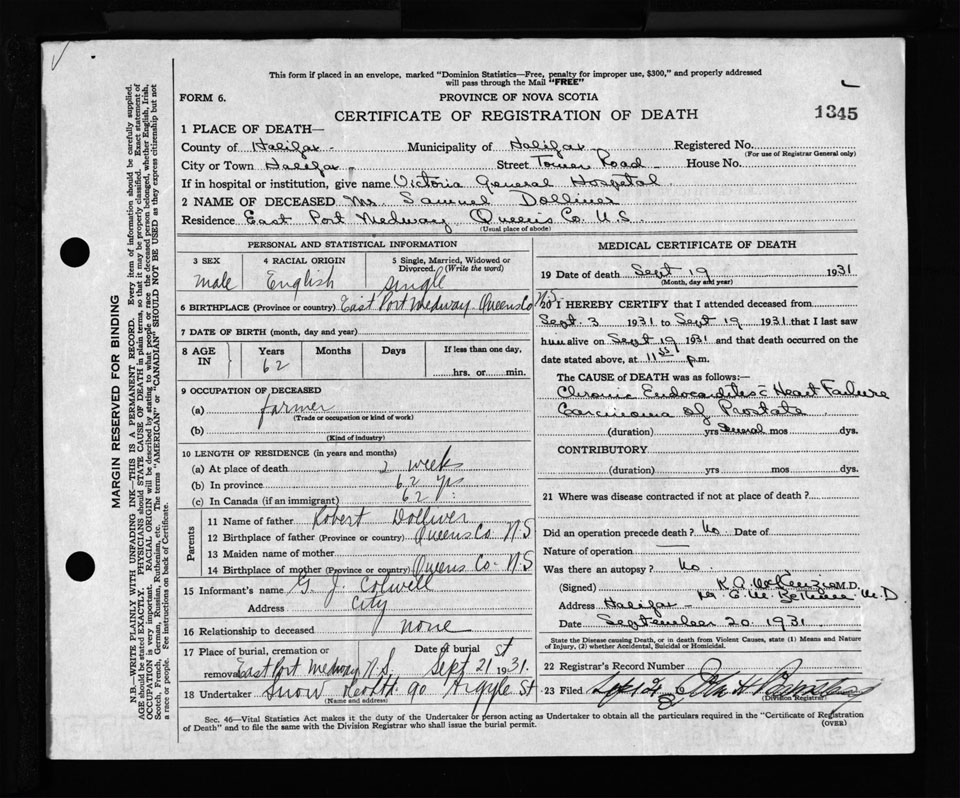 This form if placed in an envelope, marked "Dominion Statistics—Free, penalty for improper use, $300," and properly addressed
will pass through the Mail "FREE"
FORM 6.
PROVINCE OF NOVA SCOTIA
CERTIFICATE OF REGISTRATION OF DEATH
1345
1 PLACE OF DEATH—
County of Halifax Municipality of Halifax Registered No.
(For use of Registrar General only)
City or Town Halifax Street Tower Road House No.
If in hospital or institution, give name Victoria General Hospital
2 NAME OF DECEASED Mr. Samuel Dolliver
Residence East Port Medway Queens Co. N.S.
(Usual place of abode)
PERSONAL AND STATISTICAL INFORMATION
3 SEX 4 RACIAL ORIGIN 5 Single, Married, Widowed or
Divorced. (Write the word)
male English single
6 BIRTHPLACE (Province or country) East Port Medway. Queens Co N.S.
7 DATE OF BIRTH (month, day and year)
8 AGE IN Years Months Days If less than one day,
62
hrs. or min.
9 OCCUPATION OF DECEASED
(a) farmer
(Trade or occupation or kind of work)
(b)
(Kind of industry)
10 LENGTH OF RESIDENCE (in years and months)
(a) At place of death 2 weeks
(b) In province 62 yrs
(c) In Canada (if an immigrant) 62
Parents
11 Name of father Robert Dolliver
12 Birthplace of father (Province or country) Queens Co N.S
13 Maiden name of mother
14 Birthplace of mother (Province or country) Queens Co- N-S
15 Informant's name G. J. Colwell
Address City
16 Relationship to deceased none
17 Place of burial, cremation or Date of burial
removal East Port Medway N.S. Sept 21st 1931.
18 Undertaker Snow 90 Argyle St
(Name and address)
MEDICAL CERTIFICATE OF DEATH
19 Date of death Sept 19 1931
(Month, day and year)
20 I HEREBY CERTIFY that I attended deceased from
Sept. 3 1931 to Sept 19 1931 that I last saw
him alive on Sept 19 1931 and that death occurred on the
date stated above, at p.m.
The CAUSE OF DEATH was as follows:—
Chronic Endocarditis = Heart Failure
Carcinoma of Prostate
(duration) yrs Several mos dys.
CONTRIBUTORY
(duration) yrs mos dys.
21 Where was disease contracted if not at place of death?
Did an operation precede death? No Date of
Nature of operation
Was there an autopsy? No.
(Signed) M.D.
M.D
Address Halifax
Date September 20 1931
State the Disease causing Death, or in death from Violent Causes, state (1) Means and Nature
of Injury, (2) whether Accidental, Suicidal or Homicidal.
22 Registrar's Record Number
23 Filed
(Division Registrar)
Sec. 46—Vital Statistics Act makes it the duty of the Undertaker or person acting as Undertaker to obtain all the particulars required in the "Certificate of Registration
of Death" and to file the same with the Division Registrar who shall issue the burial permit.
(OVER)
MARGIN RESERVED FOR BINDING
N.B.—WRITE PLAINLY WITH UNFADING INK—THIS IS A PERMANENT RECORD. Every item of information should be carefully supplied.
AGE should be stated EXACTLY. PHYSICIANS should STATE CAUSE OF DEATH in plain terms, so that it may be properly classified. Exact statement of
OCCUPATION is very important. RACIAL ORIGIN will be described by stating to what people or race the deceased person belonged, whether English, Irish,
Scotch, French, German, Russian, Ruthenian, etc. The terms "AMERICAN" or "CANADIAN" SHOULD NOT BE USED as they express citizenship but not
a race or people. Fee instructions on back of Certificate.